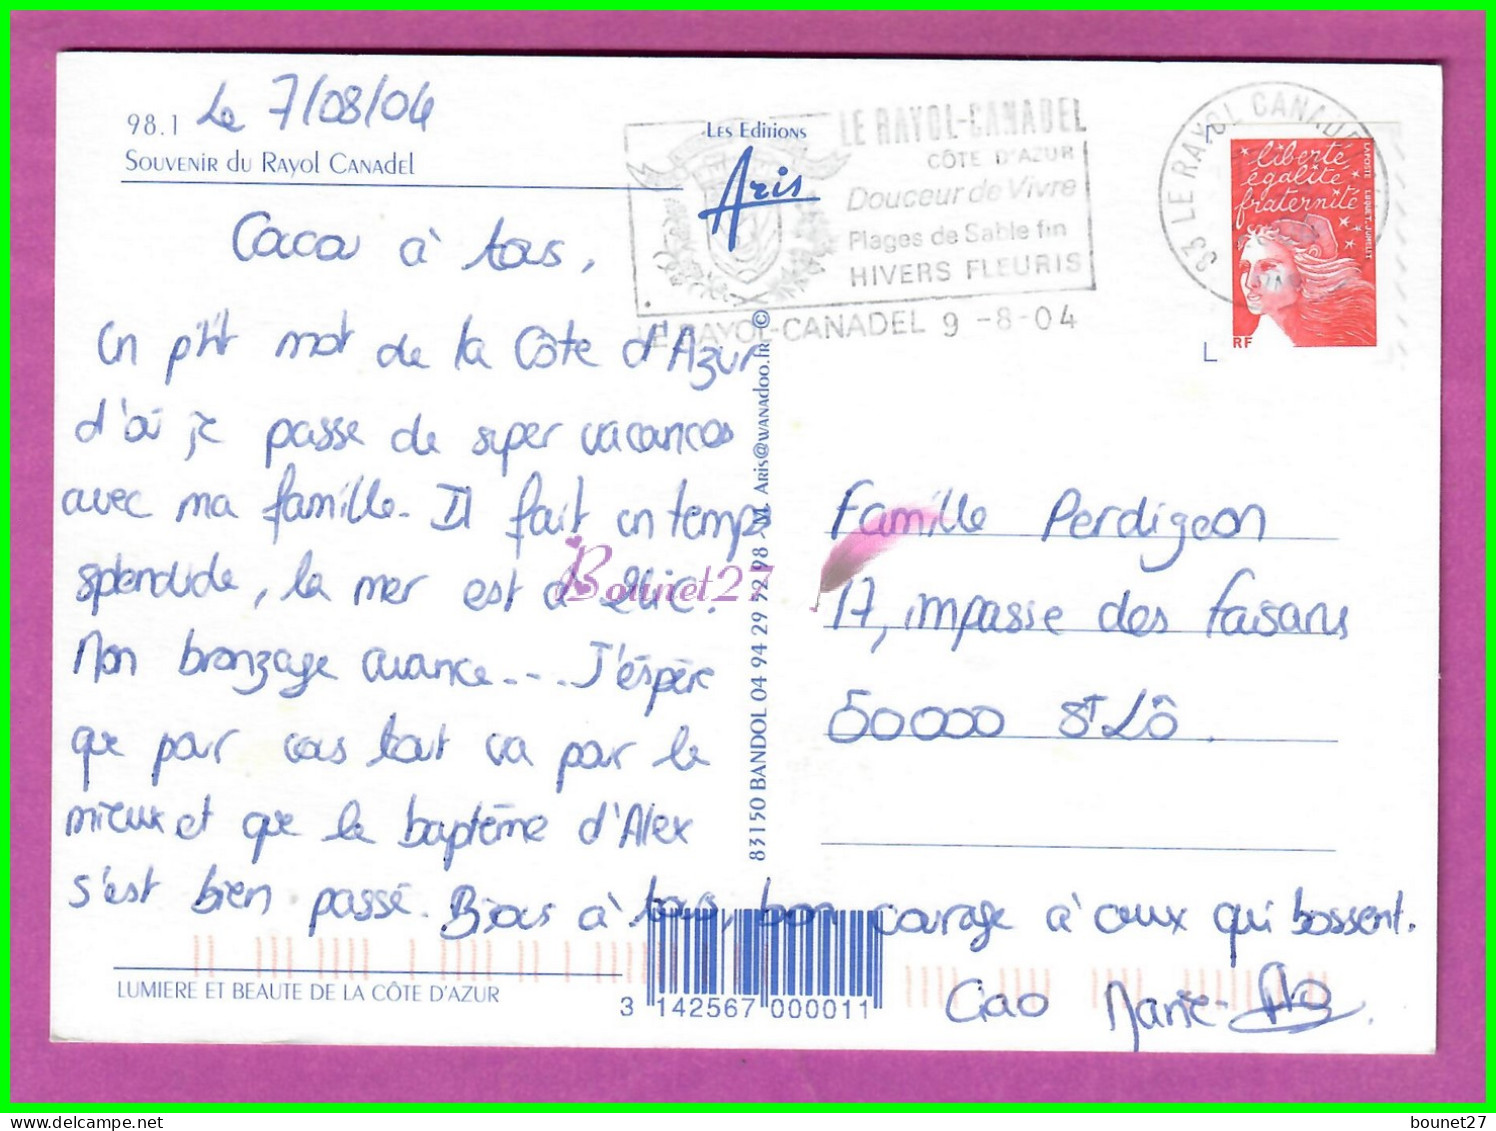 98.1 Le 7/08/04
Souvenir du Rayol Canadel
Les Editions
Aris
LE RAYOL-CANADEL
CÔTE D'AZUR
Douceur de Vivre
Plages de Sable fin
HIVERS FLEURIS
LE RAYOL-CANADEL 9 -8-04
83 LE RAYOL CANADEL
liberté
égalité
fraternité
LA POSTE
LUQUET-JUMELET
RF
Coucou à tous,
Un p'tit mot de la Côte d'Azur
d'où je passe de super vacances
avec ma famille. Il fait un temps
splendide, la mer est à
Mon bronzage avance.... J'éspère
que pour vous tout va pour le
mieux et que le baptême d'Alex
s'est bien passé. Bisous à tous, bon courage à ceux qui bossent.
Ciao Marie-
Famille Perdigeon
17, impasse des Faisans
50000 St Lô.
83150 BANDOL 04 94 29 92 98 M. Aris@wanadoo.fr ©
Bounet27
LUMIERE ET BEAUTE DE LA CÔTE D'AZUR
3 142567 000011
bounet27